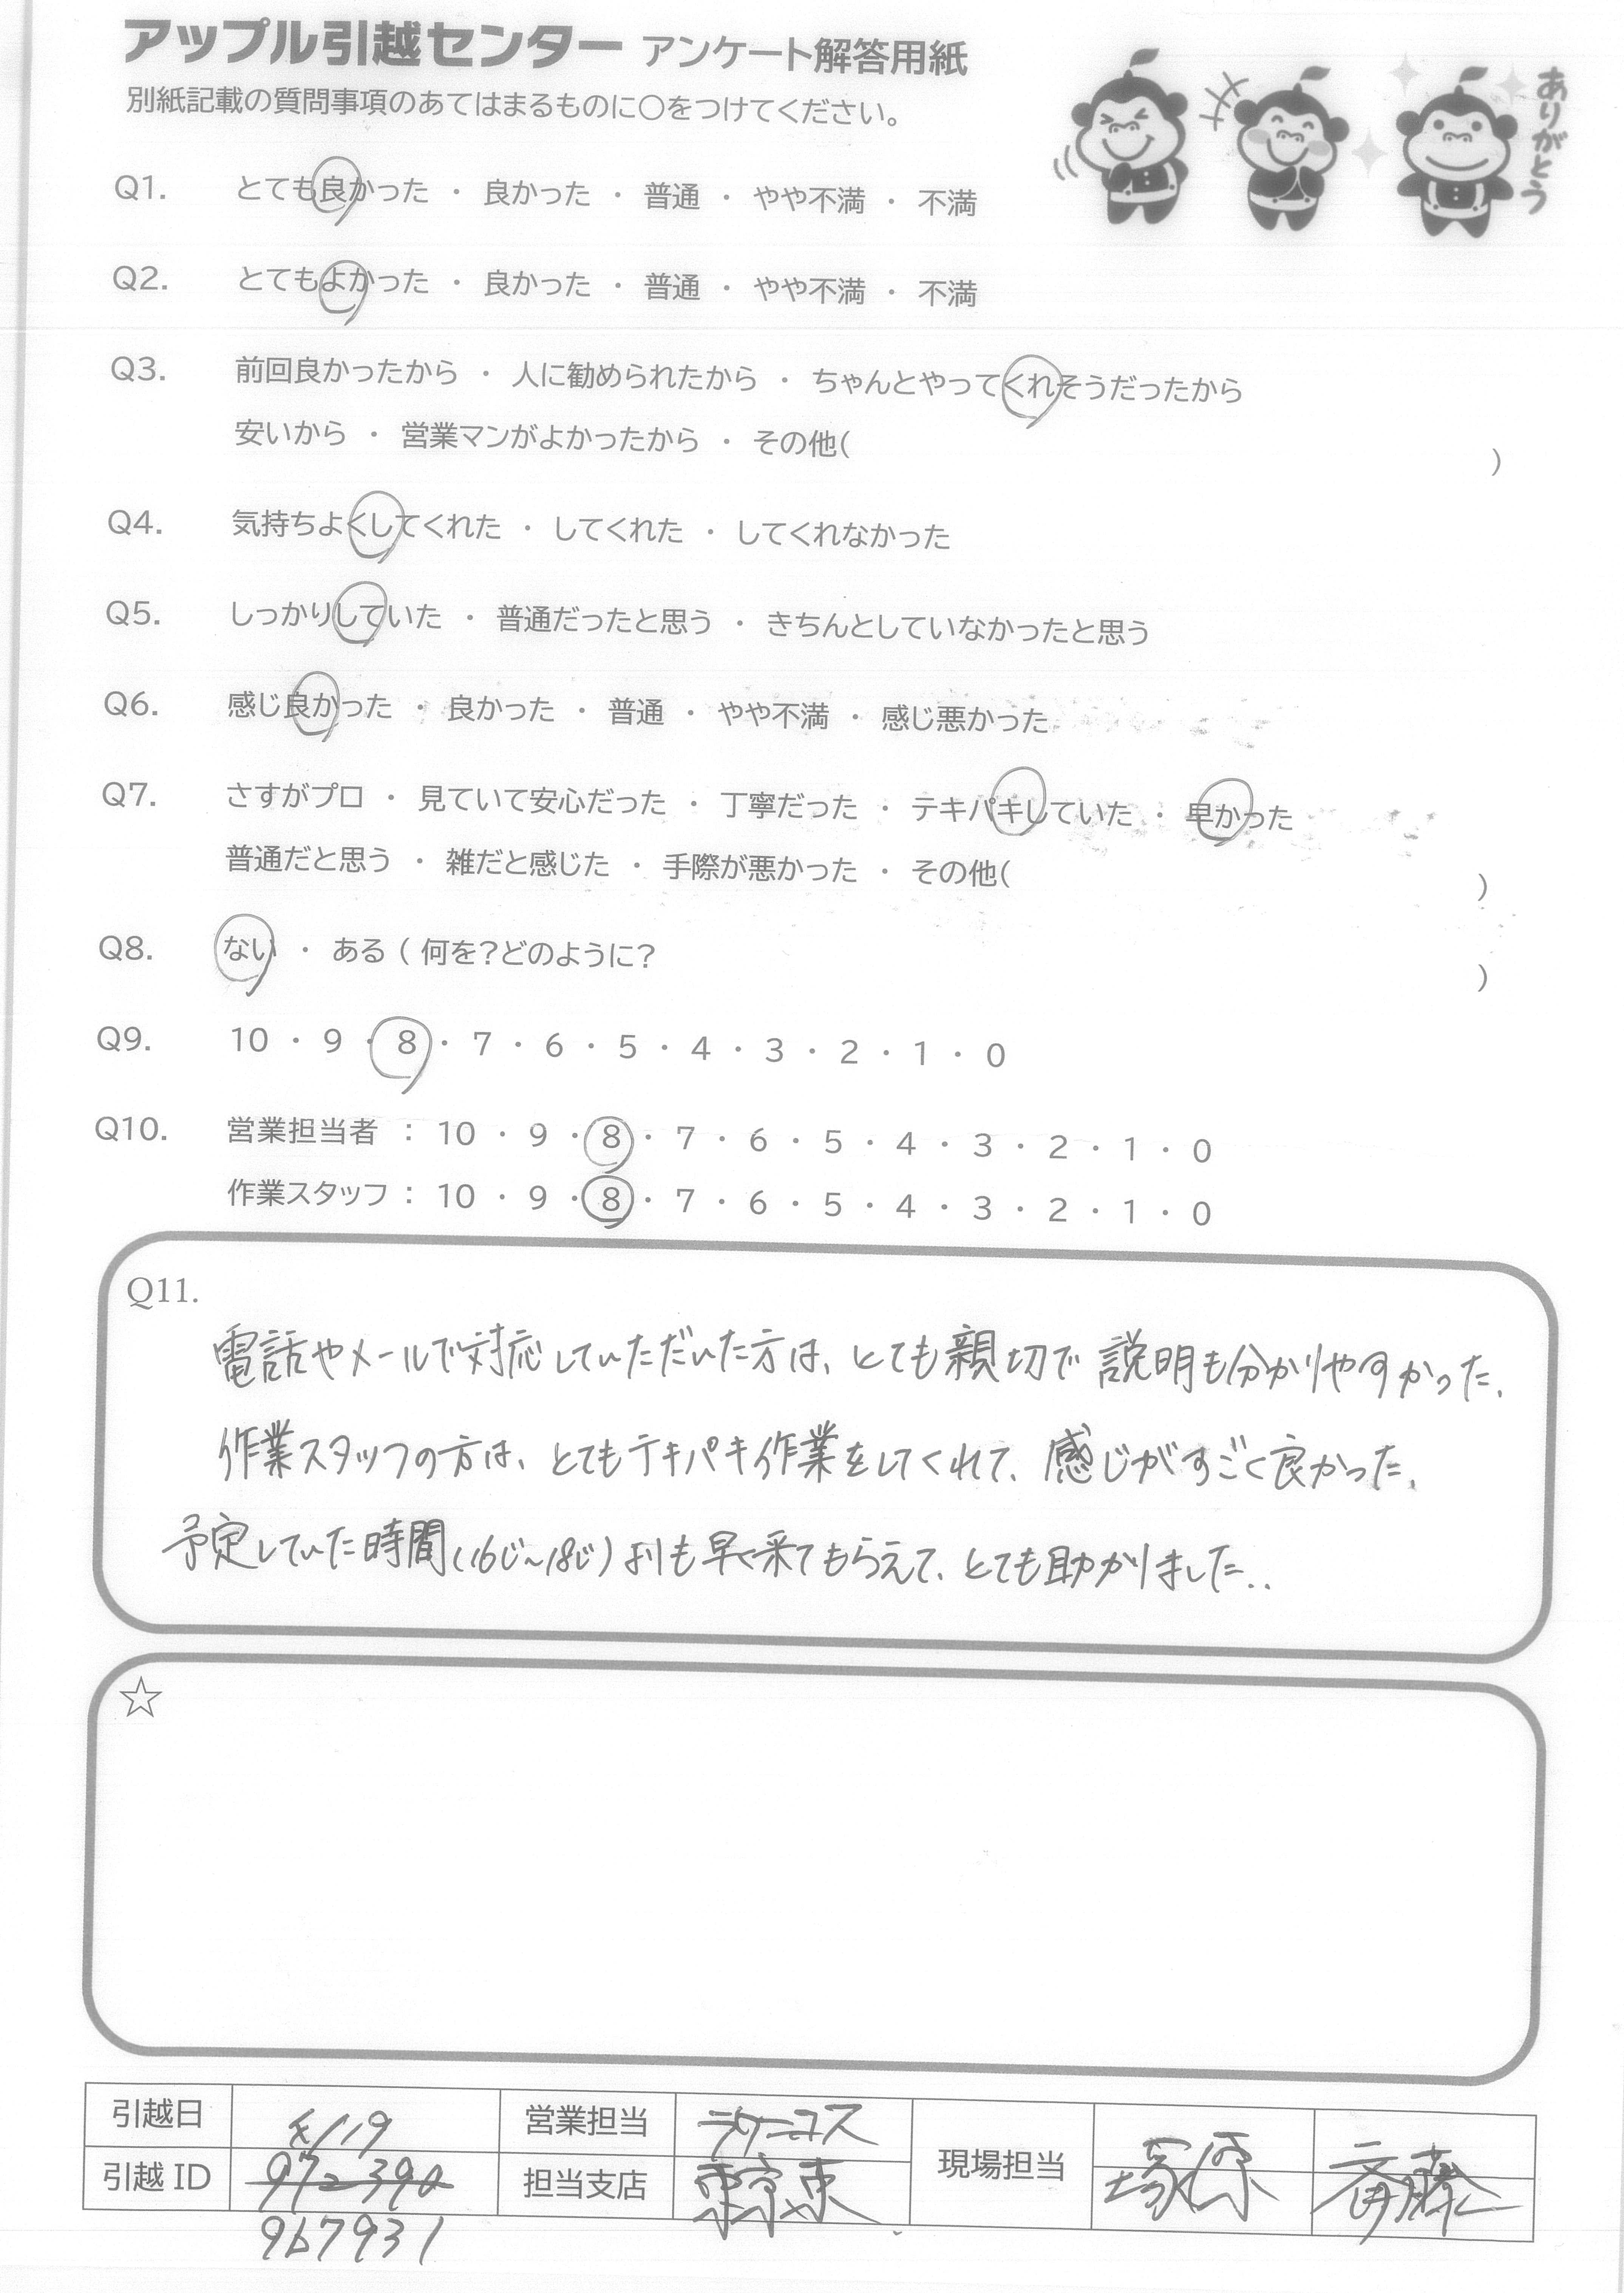 アップル引越センター アンケート解答用紙
別紙記載の質問事項のあてはまるものに〇をつけてください。
ありがとう
Q1. とても良かった ・ 良かった ・ 普通 ・ やや不満 ・ 不満
Q2. とてもよかった ・ 良かった ・ 普通 ・ やや不満 ・ 不満
Q3. 前回良かったから ・ 人に勧められたから ・ ちゃんとやってくれそうだったから
安いから ・ 営業マンがよかったから ・ その他( )
Q4. 気持ちよくしてくれた ・ してくれた ・ してくれなかった
Q5. しっかりしていた ・ 普通だったと思う ・ きちんとしていなかったと思う
Q6. 感じ良かった ・ 良かった ・ 普通 ・ やや不満 ・ 感じ悪かった
Q7. さすがプロ ・ 見ていて安心だった ・ 丁寧だった ・ テキパキしていた ・ 早かった
普通だと思う ・ 雑だと感じた ・ 手際が悪かった ・ その他( )
Q8. ない ・ ある ( 何を?どのように? )
Q9. 10 ・ 9 ・ 8 ・ 7 ・ 6 ・ 5 ・ 4 ・ 3 ・ 2 ・ 1 ・ 0
Q10. 営業担当者 : 10 ・ 9 ・ 8 ・ 7 ・ 6 ・ 5 ・ 4 ・ 3 ・ 2 ・ 1 ・ 0
作業スタッフ : 10 ・ 9 ・ 8 ・ 7 ・ 6 ・ 5 ・ 4 ・ 3 ・ 2 ・ 1 ・ 0
Q11.
電話やメールで対応していただいた方は、とても親切で説明も分かりやすかった.
作業スタッフの方は、とてもテキパキ作業をしてくれて、感じがすごく良かった.
予定していた時間(16じ~18じ)よりも早く来てもらえて、とても助かりました..
☆
引越日 8/19 営業担当 現場担当 塚原 斎藤
引越 ID 972390 担当支店 東京東
967931